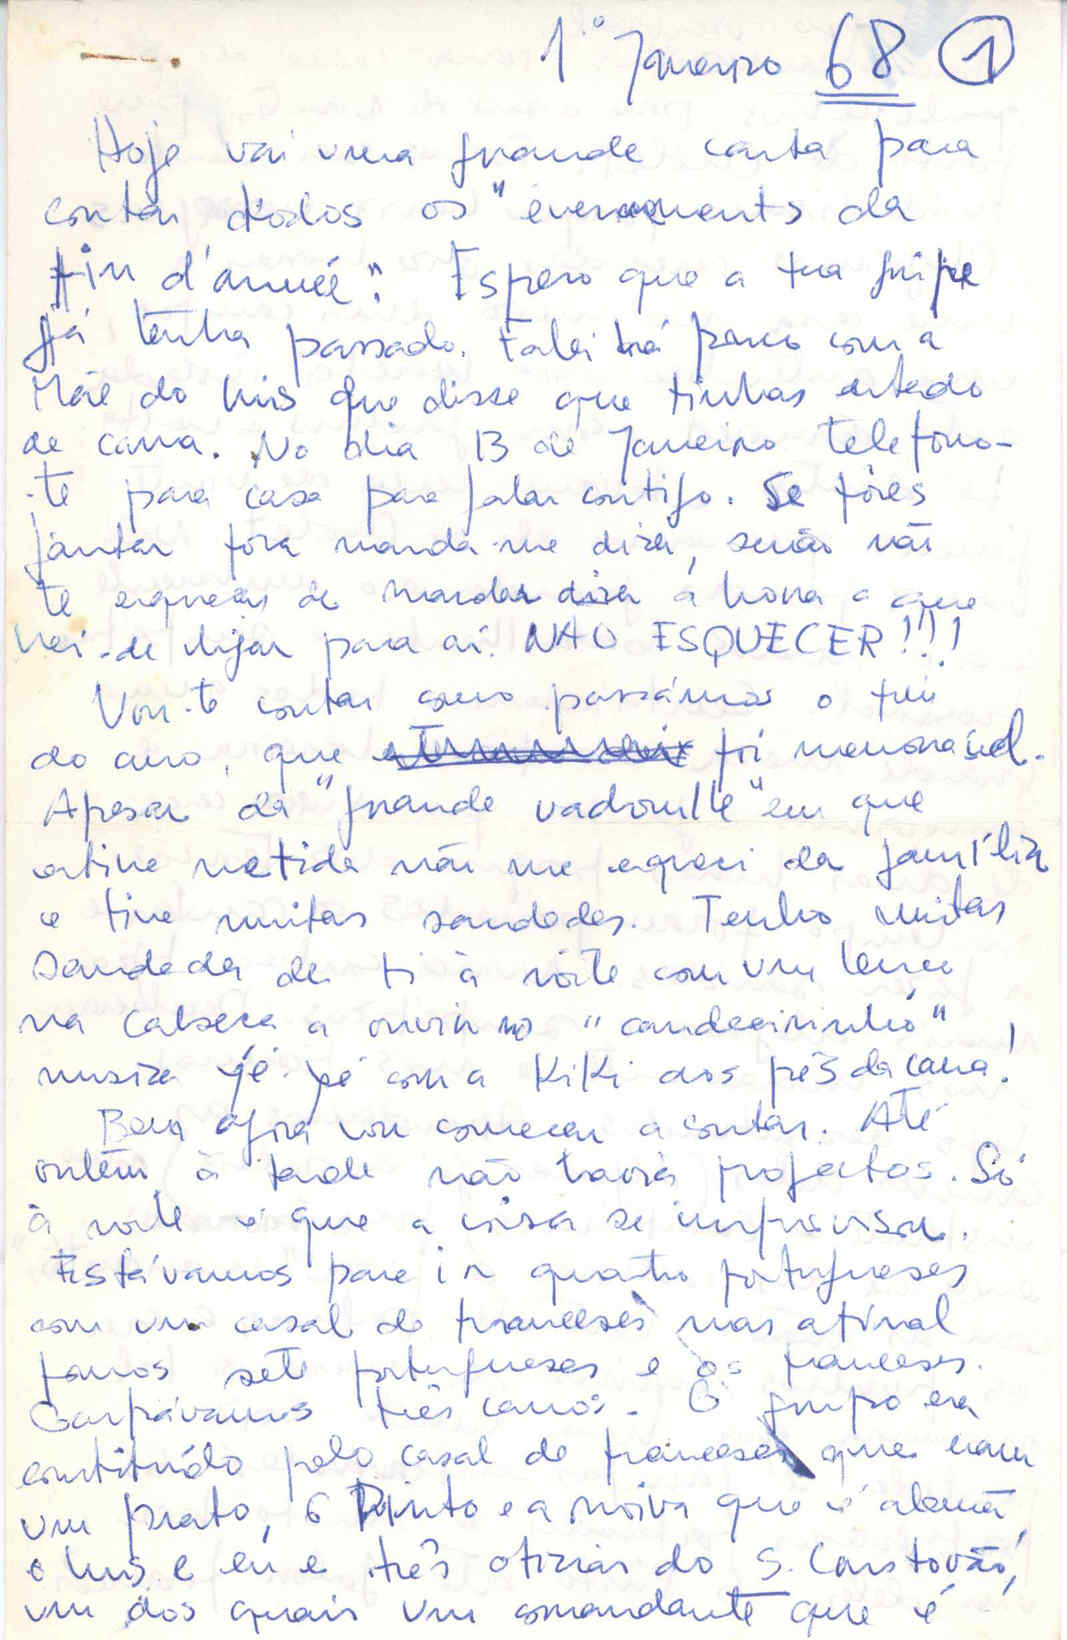 1º Janeiro 68 1
Hoje vai uma grande carta para
contar todos os "évennements da
fin d'année". Espero que a tua gripe
já tenha passado. Falei há pouco com a
Mãe do Luis que disse que tinhas estado
de cama. No dia 13 de Janeiro telefono-
-te para casa para falar contigo. Se fôres
jantar fora manda-me dizer, senão não
te esqueças de mandar dizer a hora a que
hei-de ligar para aí. NÃO ESQUECER!!!
Vou-te contar como passámos o fim
do ano, que foi memorável.
Apesar da "grande vadrouille" em que
estive metida não me esqueci da família
e tive muitas saudades. Tenho muitas
saudades de ti à noite com um lenço
na cabeça a ouvir no "candeeirinho"
musica yé-yé com a Kiki aos pés da cama!
Bem agora vou começar a contar. Até
ontem à tarde não havia projectos. Só
à noite é que a coisa se improvisou.
Estávamos para ir quatro portugueses
com um casal de franceses mas afinal
fomos sete portugueses e os franceses.
Ocupávamos três carros. O grupo era
constituído pelo casal de franceses que eram
um prato, o Pinto e a noiva que é alemã,
o Luis e eu e três oficiais do S. Cristovão,
um dos quais um comandante que é